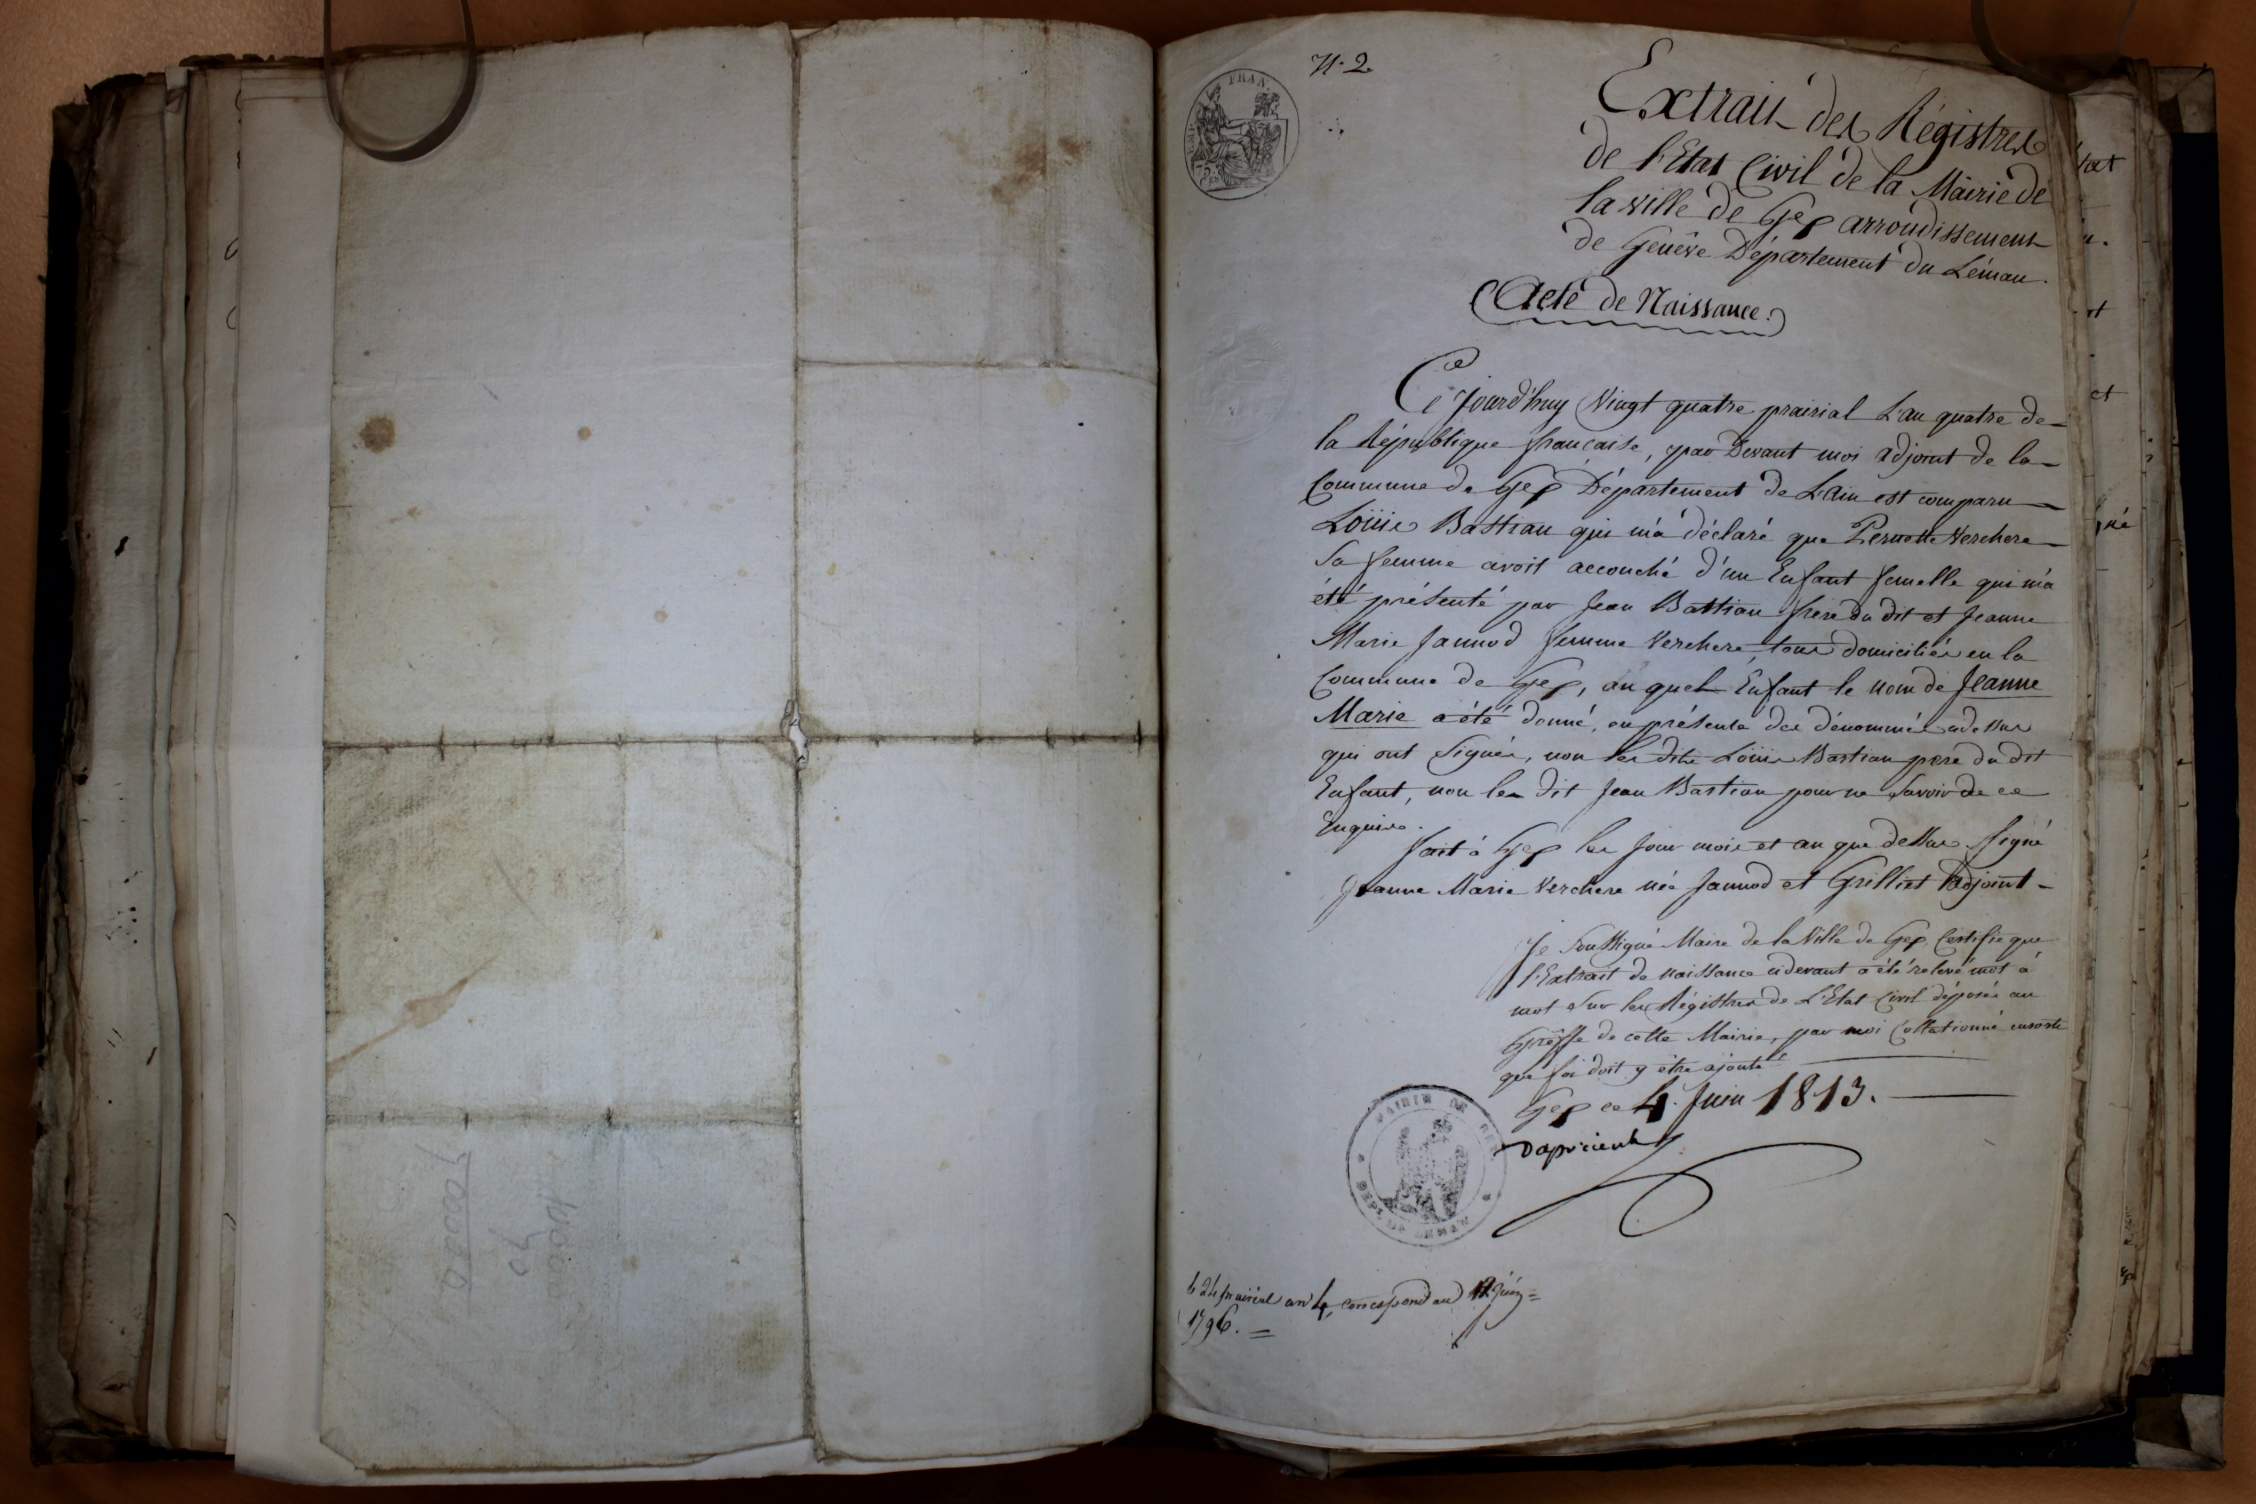 N. 2
FRAN.
Extrait des Régistres
de l'Etat Civil de la Mairie de
la ville de Gex arrondissement
de Genève Département du Léman.
Acte de Naissance.
Ce Jourd'huy Vingt quatre prairial L'an quatre de
la République française, par Devant moi adjoint de la
Commune de Gex Département de L'Ain est comparu
Loüis Bastian qui m'a déclaré que Pernette Verchere
Sa femme avoit accouché d'un Enfant femelle qui m'a
été présenté par Jean Bastian frere du dit et Jeanne
Marie Jannod femme Verchere, tous domiciliés en la
Commune de Gex, au quel Enfant le nom de Jeanne
Marie a été donné, en présence des dénommés adessus
qui ont Signés, non les dits Loüis Bastian pere du dit
Enfant, non les dit Jean Bastian pour ne Savoir de ce
Enquis.
fait à Gex les Jour mois et an que dessus Signé
Jeanne Marie Verchere née Jannod et Grilliet adjoint
Je Soussigné Maire de la Ville de Gex Certifie que
l'Extrait de naissance cidevant a été relevé mot à
mot Sur les Régistres de L'Etat Civil déposés au
Greffe de cette Mairie, par moi Collationné ensorte
que foi doit y être ajouté
Gex ce 4. Juin 1813.
MAIRIE DE GEX
le 24 prairial an 4, correspond au 12 juin
1796.